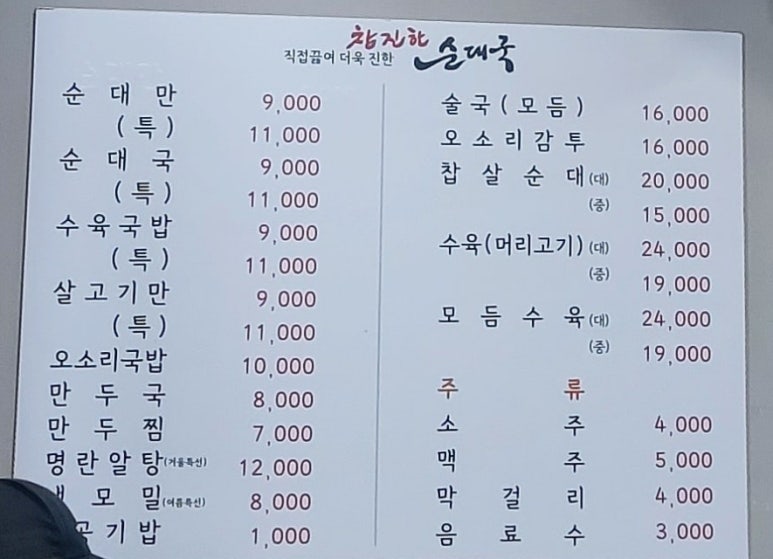 참진한 순대국
직접끓여 더욱 진한
순대만 9,000
(특) 11,000
순대국 9,000
(특) 11,000
수육국밥 9,000
(특) 11,000
살고기만 9,000
(특) 11,000
오소리국밥 10,000
만두국 8,000
만두찜 7,000
명란알탕(겨울특선) 12,000
모밀(여름특선) 8,000
공기밥 1,000
술국(모듬) 16,000
오소리감투 16,000
찹살순대(대) 20,000
(중) 15,000
수육(머리고기)(대) 24,000
(중) 19,000
모듬수육(대) 24,000
(중) 19,000
주류
소주 4,000
맥주 5,000
막걸리 4,000
음료수 3,000